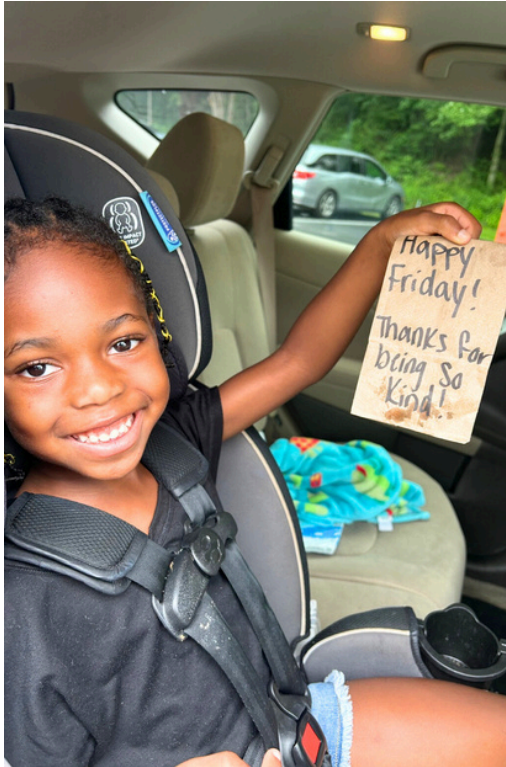 Happy
Friday!
Thanks for
being So
Kind!